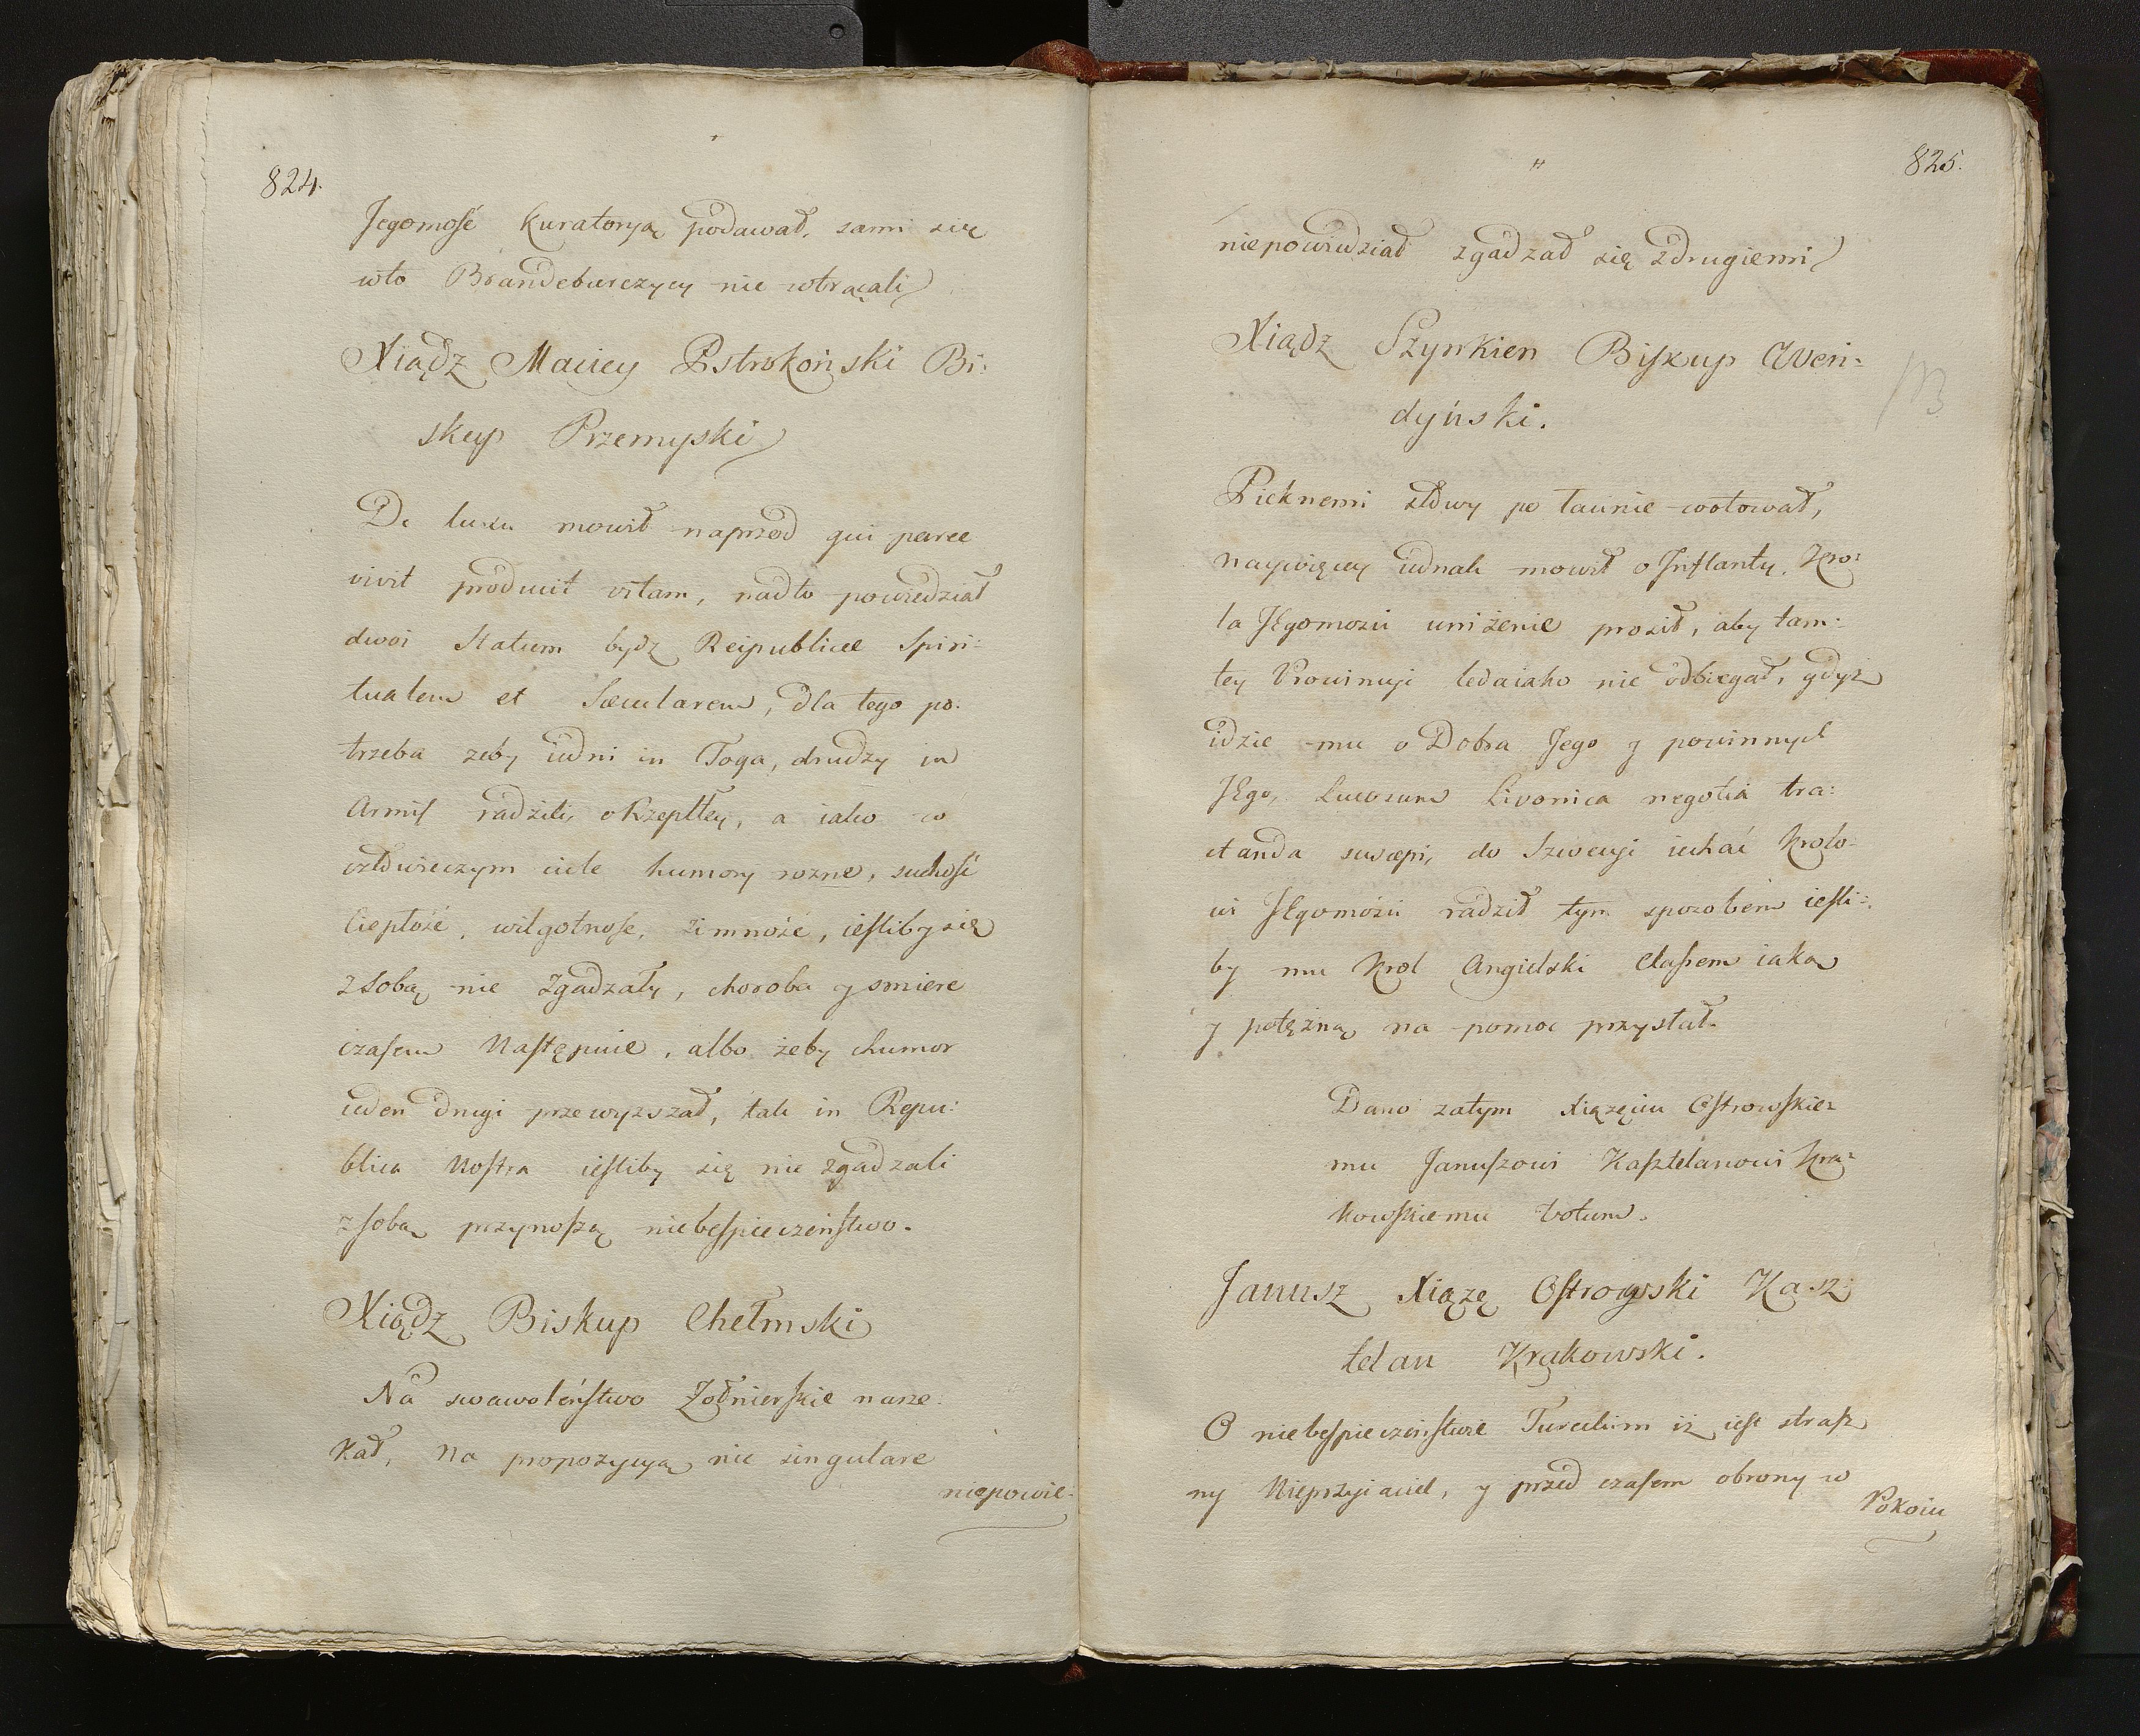 824.
Jegomość Kuratoryą podawał, sami się
wto Brandeburczycy nie wtrącali
Xiądz Maciey Pstrokoński Bi:
skup Przemyski
De luxu mowił naprzod qui parce
vivit producit vitam, nadto powiedział
dwoi Statum bydź Reipublicae Spiri:
tualem et Saecularem, dla tego po:
trzeba zeby iedni in Toga, drudzy in
Armis radzili o Rzeptłey, a iako w
człowieczym ciele humory rozne, suchość
Ciepłość, wilgotnosc, zimność, iesliby się
z sobą nie zgadzały, choroba y smierc
czasem Następuie, albo żeby chumor
ieden drugi przewyzszał, tak in Repu:
blica Nostra iesliby się nie zgadzali
z sobą przynoszą niebespieczeństwo.
Xiądz Biskup Chełmski
Na swawoleństwo Żołnierskie narze:
kał, na propozycyą nic singulare
niepowie:
825.
niepowiedział zgadzał się zdrugiemi
Xiądz Szynkien Biskup Wen:
dyński.
Pieknemi słowy po łacinie wotował,
naywięcey iednak mowił o Inflanty. Kro:
la JEgomosci uniżenie prosił, aby tam:
tey Prowincyi ledaiako nie odbiegał, gdyż
idzie mu o Dobra Jego y powinnych
JEgo, Livonica negotia tra:
ctanda suscepi, do Szwecyi iechać Krolo:
wi JEgomości radził tym sposobem iesli:
by mu Krol Angielski Classem iaką
y potężną na pomoc przysłał.
Dano zatym Xiążęciu Ostrowskie:
mu Januszowi Kasztelanowi Kra:
kowskiemu votum.
Janusz Xiążę Ostrogski Kasz:
telan Krakowski.
O niebespieczeństwie Tureckim iż iest strasz
ny Nieprzyiaciel, y przed czasem obrony w
Pokoiu